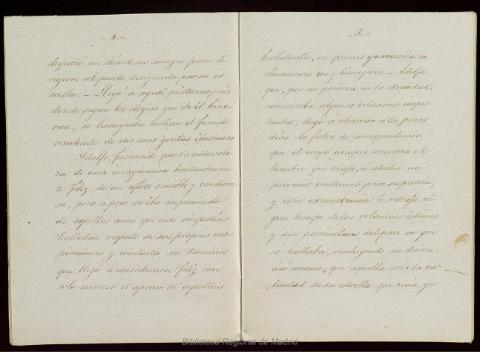 - 4. -
despidió un día de sus amigos para di-
rigirse al punto designado por su es-
trella. - Llegó a aquel pintoresco país
donde segun los elogios que de él hicie-
ran, se lisongeaba hallar el fecundo
resultado de sus mas gratas ilusiones
Adolfo, favorecido por la naturale-
za de una imaginacion bastantemen-
te feliz, de un afecto sensible y candoro-
so, poco a poco se iba imponiendo
de aquellas cosas que más simpatías
hallaban respecto de sus propias ins-
piraciones y conducta, en términos
que llegó a considerarse feliz con
solo merecer el aprecio de aquellos
- 5. -
habitantes, en quienes reconocia in-
clinaciones muy lisongeras. - Adolfo
que, por su posicion en la sociedad,
conservaba algunas relaciones impor-
tantes, llegó a observar a los pocos
dias la falta de correspondencia
que el creyó
hombre que viaja, o estudia un
porvenir venturoso para su patria,
y esta circunstancia le retrajo al-
gun tiempo de las relaciones íntimas
y aun particulares del pais en que
se hallaba, concluyendo con decirse
a sí mismo, que aquella era la vo-
luntad de su estrella que creia ya
Biblioteca Regional de Madrid